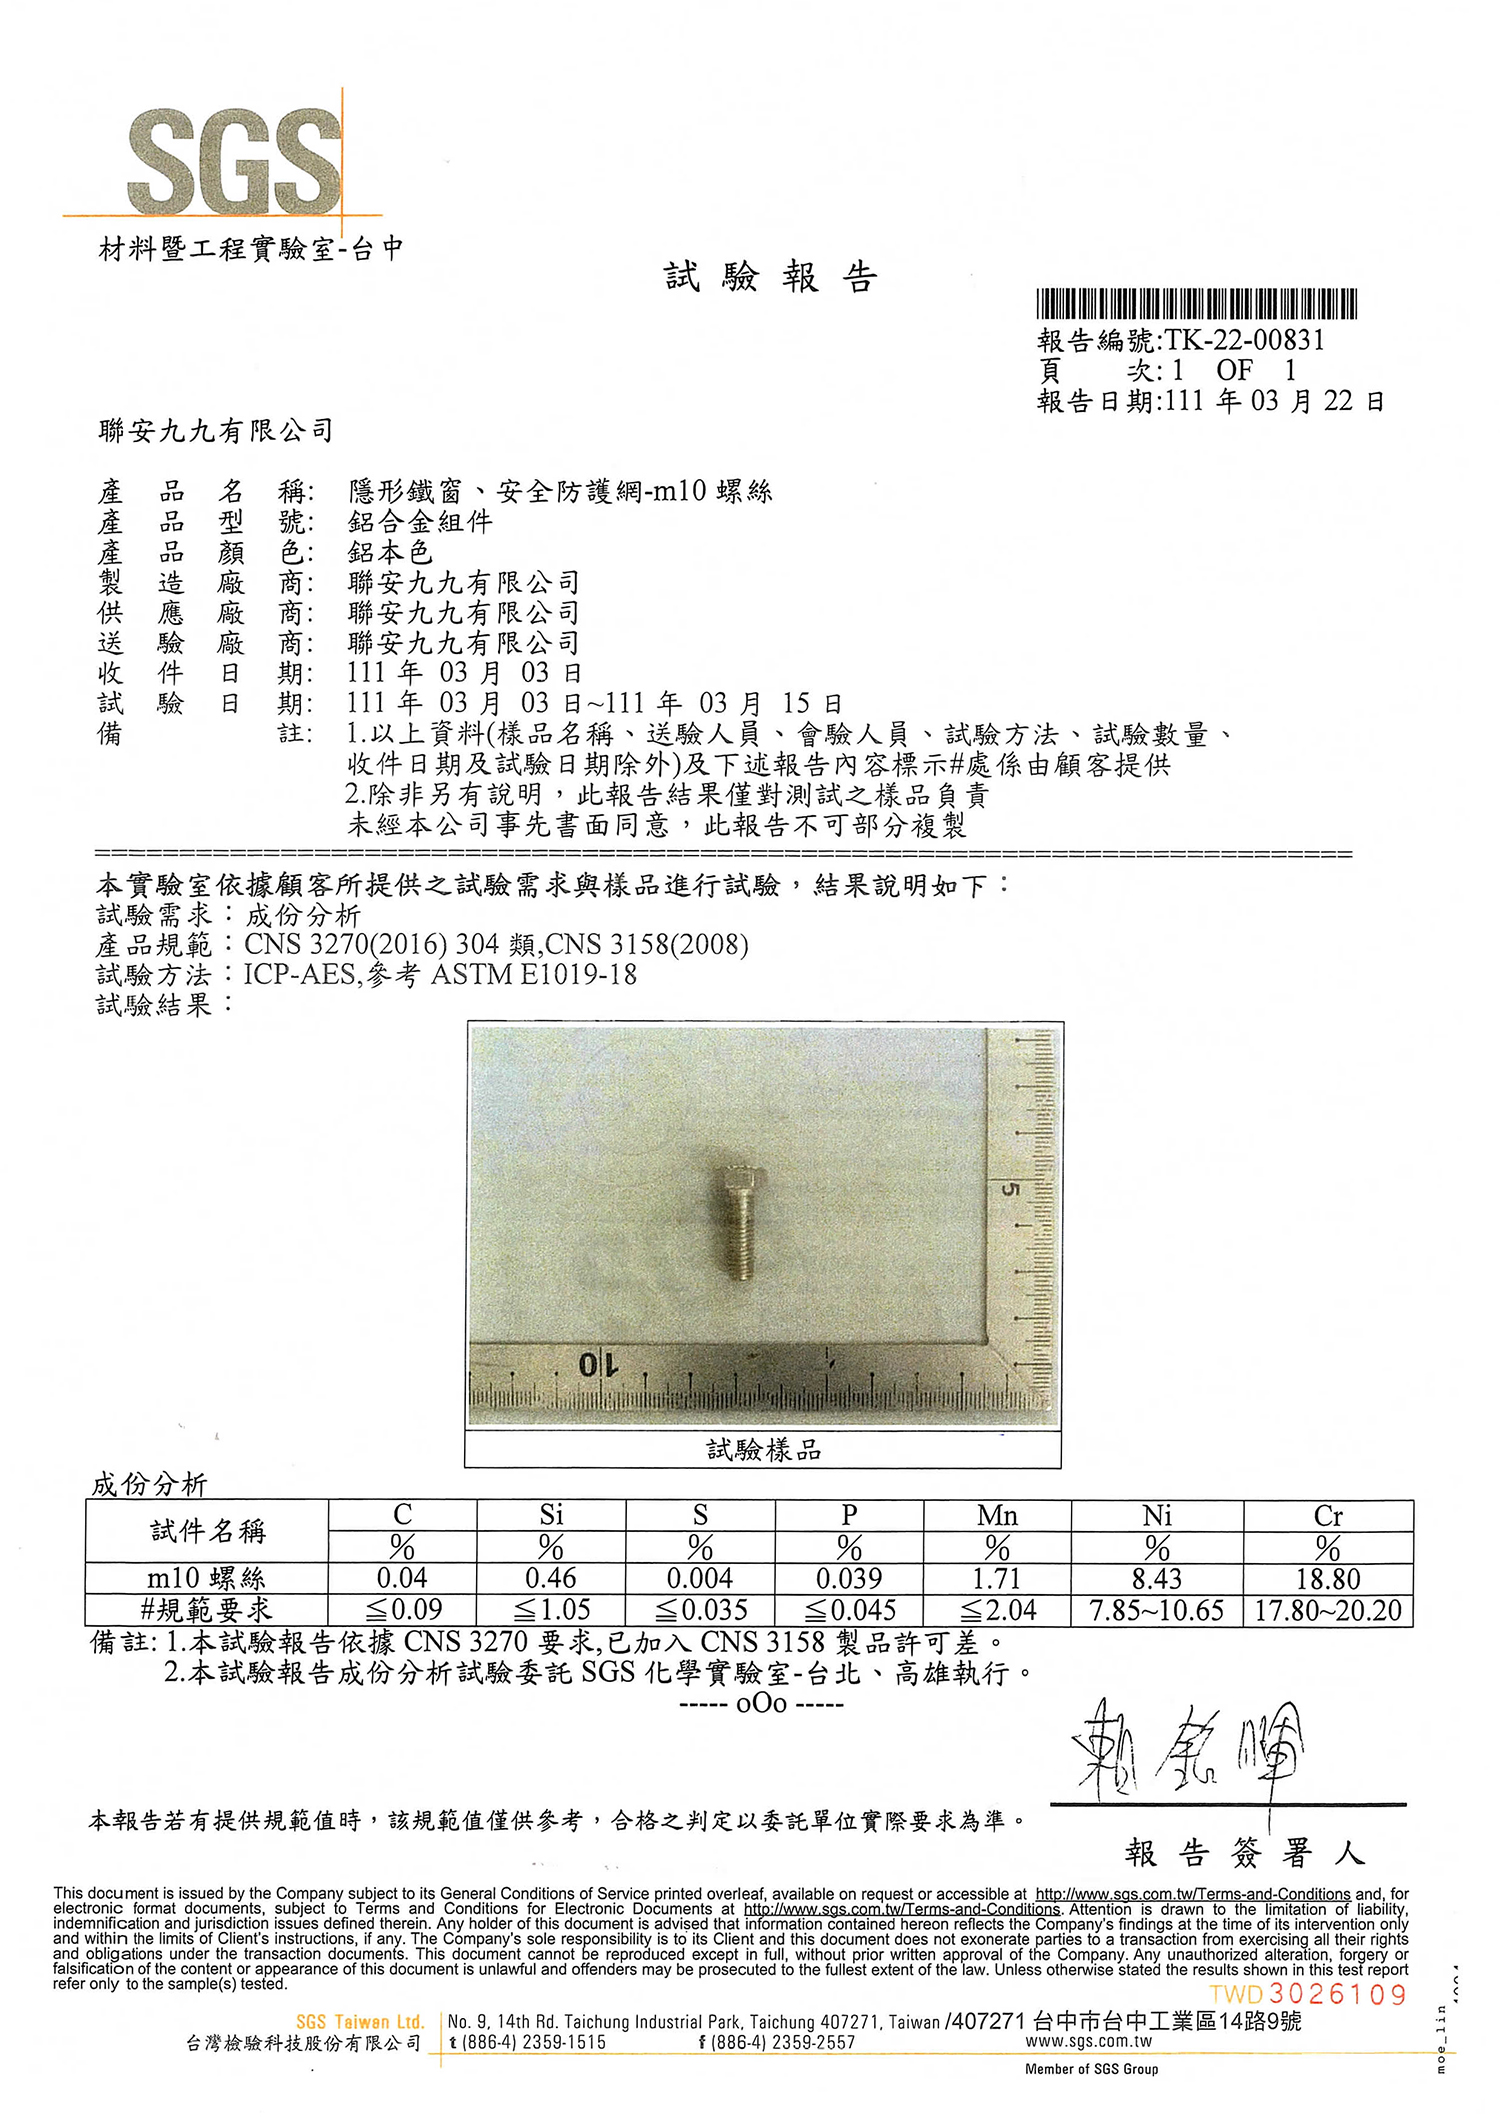 SGS
材料暨工程實驗室-台中
試驗報告
報告編號:TK-22-00831
頁 次: 1 OF 1
報告日期:111 年 03 月 22 日
聯安九九有限公司
產品名稱: 隱形鐵窗、安全防護網-m10 螺絲
產品型號: 鋁合金組件
產品顏色: 鋁本色
製造廠商: 聯安九九有限公司
供應廠商: 聯安九九有限公司
送驗廠商: 聯安九九有限公司
收件日期: 111 年 03 月 03 日
試驗日期: 111 年 03 月 03 日~111 年 03 月 15 日
備註: 1.以上資料(樣品名稱、送驗人員、會驗人員、試驗方法、試驗數量、
收件日期及試驗日期除外)及下述報告內容標示#處係由顧客提供
2.除非另有說明，此報告結果僅對測試之樣品負責
未經本公司事先書面同意，此報告不可部分複製
本實驗室依據顧客所提供之試驗需求與樣品進行試驗，結果說明如下：
試驗需求：成份分析
產品規範：CNS 3270(2016) 304 類,CNS 3158(2008)
試驗方法：ICP-AES,參考 ASTM E1019-18
試驗結果：
5
10
試驗樣品
成份分析
試件名稱 C Si S P Mn Ni Cr
% % % % % % %
m10 螺絲 0.04 0.46 0.004 0.039 1.71 8.43 18.80
#規範要求 ≦0.09 ≦1.05 ≦0.035 ≦0.045 ≦2.04 7.85~10.65 17.80~20.20
備註: 1.本試驗報告依據 CNS 3270 要求,已加入 CNS 3158 製品許可差。
2.本試驗報告成份分析試驗委託 SGS 化學實驗室-台北、高雄執行。
----- oOo -----
賴銘暉
本報告若有提供規範值時，該規範值僅供參考，合格之判定以委託單位實際要求為準。
報告簽署人
This document is issued by the Company subject to its General Conditions of Service printed overleaf, available on request or accessible at http://www.sgs.com.tw/Terms-and-Conditions and, for
electronic format documents, subject to Terms and Conditions for Electronic Documents at http://www.sgs.com.tw/Terms-and-Conditions. Attention is drawn to the limitation of liability,
indemnification and jurisdiction issues defined therein. Any holder of this document is advised that information contained hereon reflects the Company's findings at the time of its intervention only
and within the limits of Client's instructions, if any. The Company's sole responsibility is to its Client and this document does not exonerate parties to a transaction from exercising all their rights
and obligations under the transaction documents. This document cannot be reproduced except in full, without prior written approval of the Company. Any unauthorized alteration, forgery or
falsification of the content or appearance of this document is unlawful and offenders may be prosecuted to the fullest extent of the law. Unless otherwise stated the results shown in this test report
refer only to the sample(s) tested.
TWD3026109
SGS Taiwan Ltd. No. 9, 14th Rd. Taichung Industrial Park, Taichung 407271, Taiwan /407271 台中市台中工業區14路9號
台灣檢驗科技股份有限公司 t (886-4) 2359-1515 f (886-4) 2359-2557 www.sgs.com.tw
Member of SGS Group
moe_lin